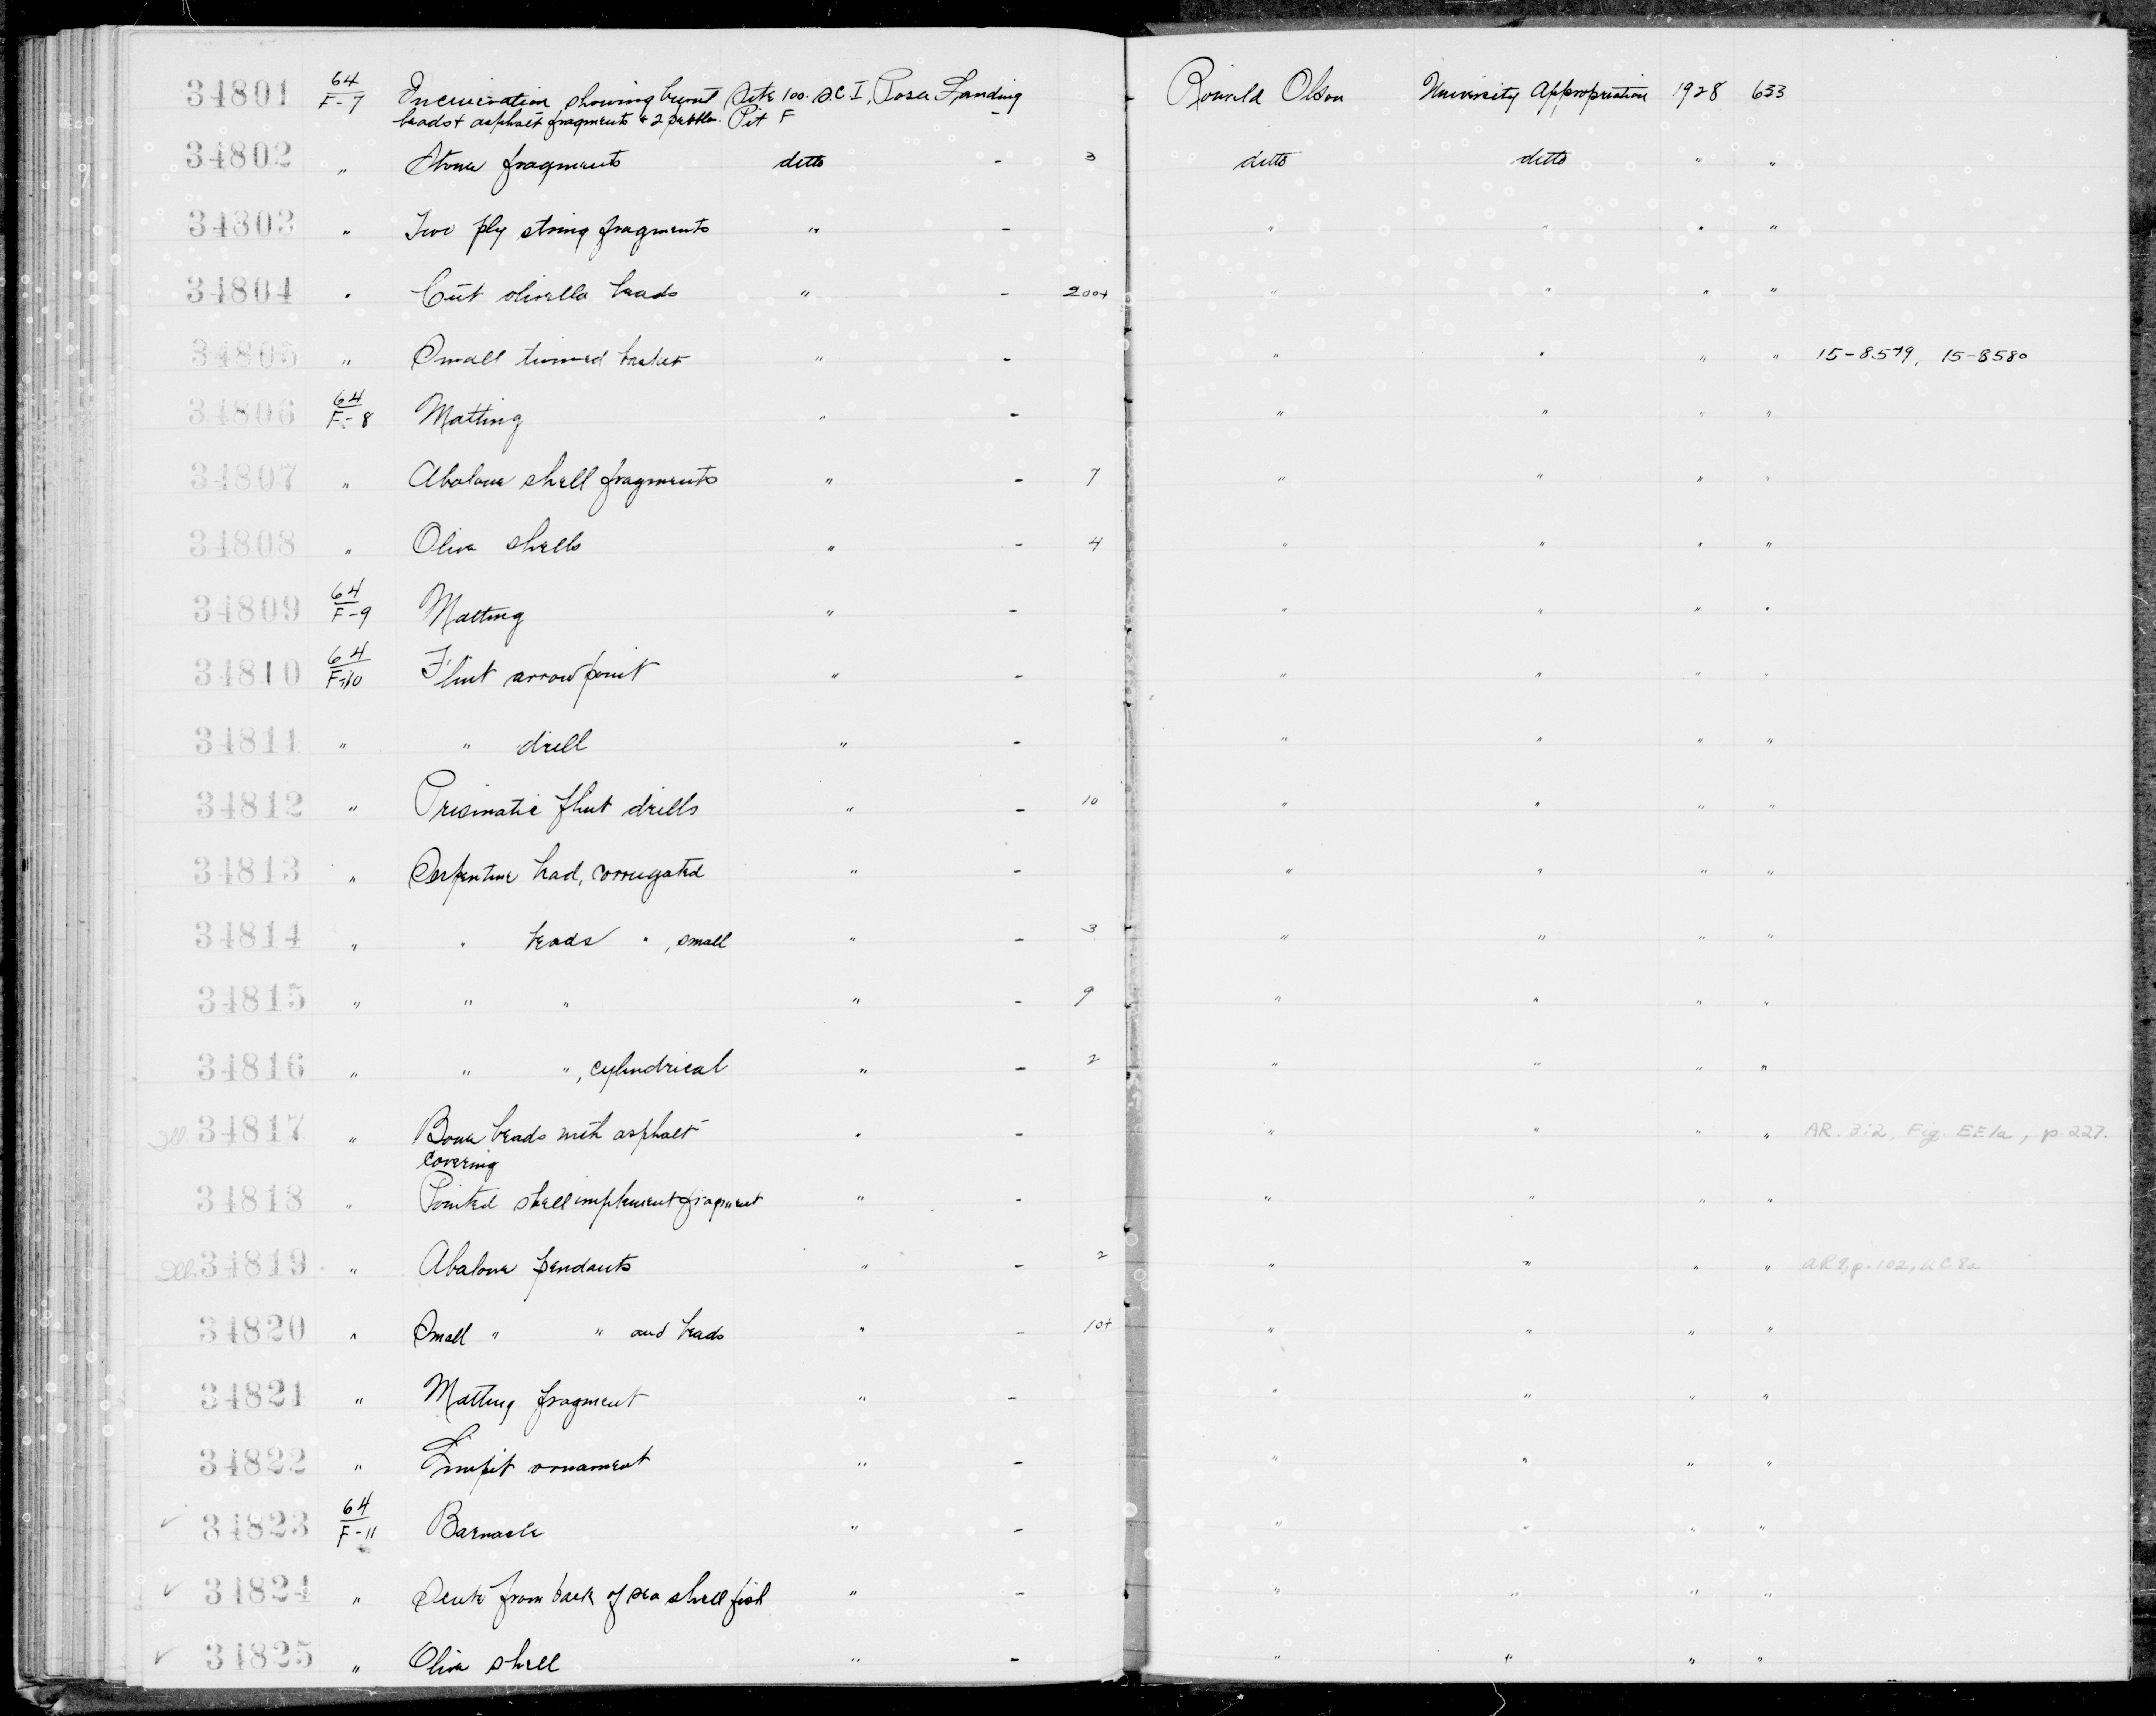 34801 64/F-7 Incineration showing burnt Site 100. S.C.I, Posa Landing Ronald Olson University Appropriation 1928 633
beads + asphalt fragments + 2 pebbles. Pit F -
34802 " Stone fragments ditto - 3 ditto ditto " "
34803 " Two ply string fragments " - " " " "
34804 " Cut olivella beads " - 200+ " " " "
34805 " Small twined basket " - " " " " 15-8579, 15-8580
34806 64/F-8 Matting " - " " " "
34807 " Abalone shell fragments " - 7 " " " "
34808 " Oliva shells " - 4 " " " "
34809 64/F-9 Matting " - " " " "
34810 64/F-10 Flint arrowpoint " - " " " "
34811 " " drill " - " " " "
34812 " Prismatic flint drills " - 10 " " " "
34813 " Serpentine bead, corrugated " - " " " "
34814 " " beads " , small " - 3 " " " "
34815 " " " " - 9 " " " "
34816 " " " , cylindrical " - 2 " " " "
Ill. 34817 " Bone beads with asphalt " - " " " " AR. 3:2, Fig. EE1a, p. 227.
covering
34818 " Pointed shell implement fragment " - " " " "
Ill. 34819 " Abalone pendants " - 2 " " " " AR 9, p. 102,
34820 " Small " " and beads " - 10+ " " " "
34821 " Matting fragment " - " " " "
34822 " Limpit ornament " - " " " "
✓ 34823 64/F-11 Barnacle " - " " " "
✓ 34824 " from back of sea shell fish " - " " " "
✓ 34825 " Oliva shell " - " " " "